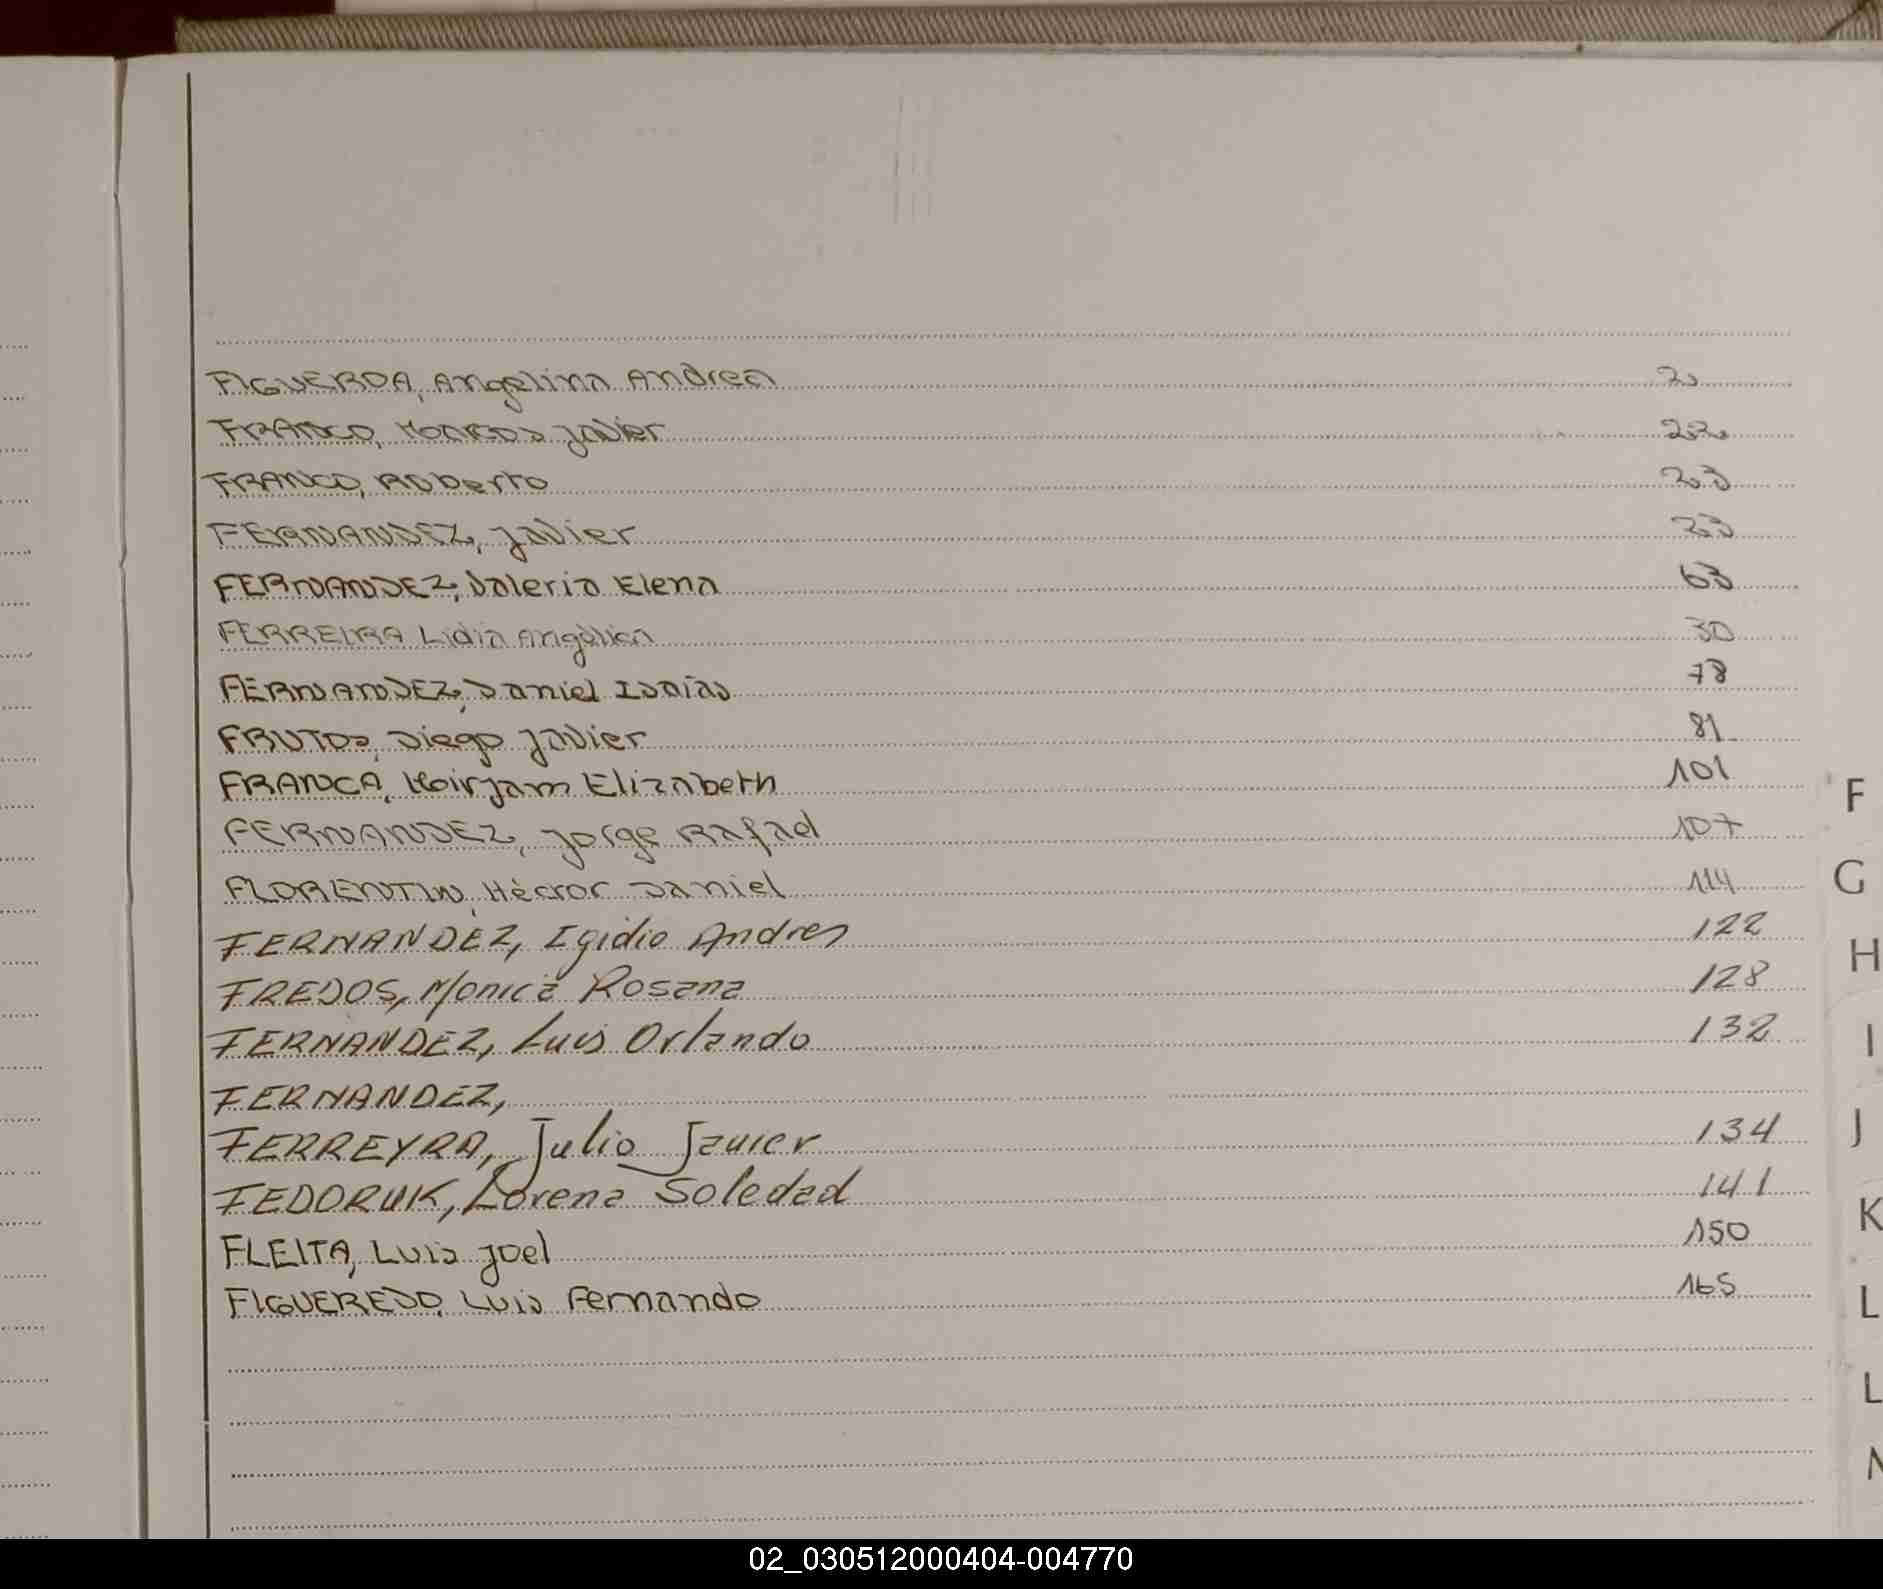 FIGUEROA, Angelina Andrea 2
FRANCO, Marcos Javier 22
FRANCO, Roberto 23
FERNANDEZ, Javier 23
FERNANDEZ, Valeria Elena 63
FERREIRA Lidia Angélica 30
FERNANDEZ, Daniel Isaías 78
FRUTOS, Diego Javier 81
FRANCA, Mirjam Elizabeth 101
FERNANDEZ, Jorge Rafael 107
FLORENTIN, Héctor Daniel 114
FERNANDEZ, Igidio Andres 122
FREDOS, Monica Rosana 128
FERNANDEZ, Luis Orlando 132
FERNANDEZ,
FERREYRA, Julio Javier 134
FEDORUK, Lorena Soledad 141
FLEITA, Luis Joel 150
FIGUEREDO, Luis Fernando 165
F
G
H
I
J
K
L
L
02_030512000404-004770